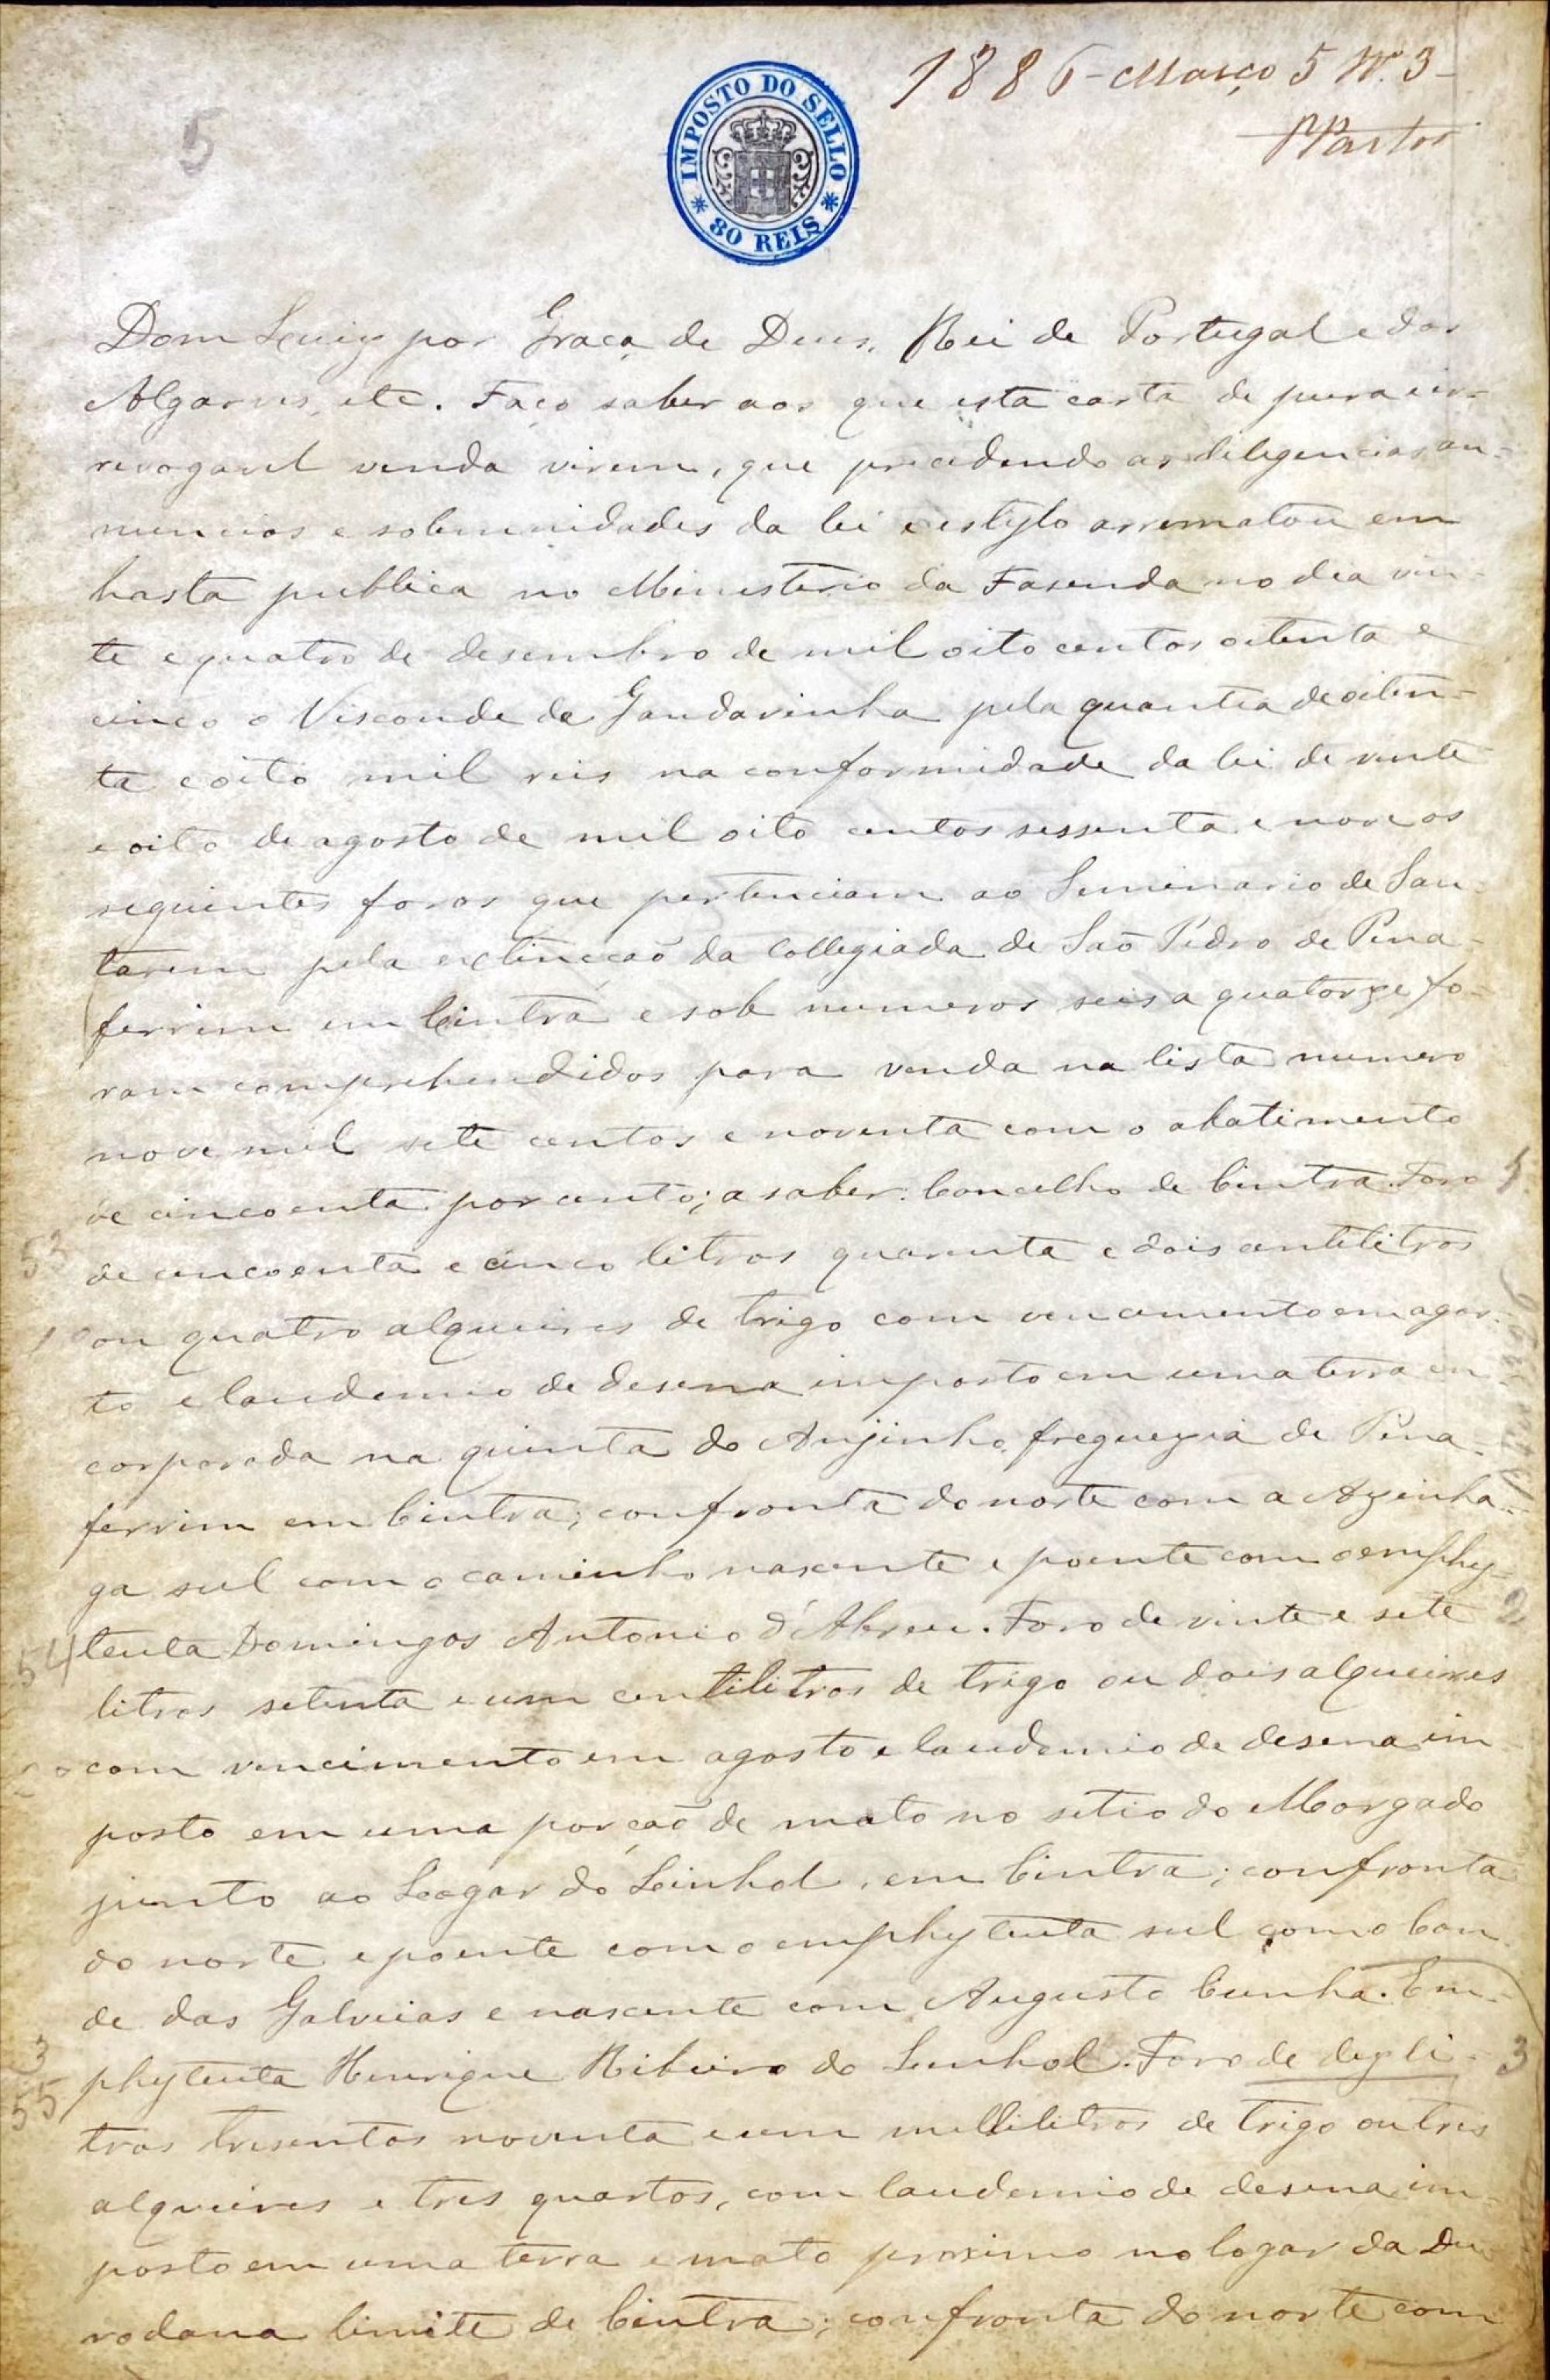 1886 - Março 5 Nº 3 -
5
IMPOSTO DO SELLO
80 REIS
Dom Luiz por Graça de Deus, Rei de Portugal e dos
Algarves, etc. Faço saber aos que esta carta de pura e ir-
revogavel venda virem, que precedendo as diligencias an-
nuncios e solemnidades da lei e estylo arrematou em
hasta publica no Ministerio da Fasenda no dia vin-
te e quatro de desembro de mil oito centos oitenta e
cinco o Visconde da Gandarinha pela quantia de oiten-
ta e oito mil reis na conformidade da lei de vinte
e oito de agosto de mil oito centos sessenta e nove os
seguintes foros que pertenciam ao Seminario de San-
tarem pela extincção da Collegiada de São Pedro de Pena-
ferrim em Cintra e sob numeros seis a quatorze fo-
ram comprehendidos para venda na lista numero
nove mil sete centos e noventa com o abatimento
de cincoenta por cento; a saber: Concelho de Cintra. Foro 1
53 de cincoenta e cinco litros quarenta e dois centilitros
ou quatro alqueires de trigo com vencimento em agos-
to e laudemio de desena imposto em uma terra en-
corporada na quinta do Anjinho, freguezia de Pena-
ferrim em Cintra; confronta do norte com a Azinha-
ga sul com o caminho nascente e poente com o emphy-
54 teuta Domingos Antonio d'Abreu. Foro de vinte e sete 2
litros setenta e um centilitros de trigo ou dois alqueires
com vencimento em agosto e laudemio de desena im-
posto em uma porção de mato no sitio do Morgado
junto ao Logar do Linhol, em Cintra; confronta
do norte e poente com o emphyteuta sul com o Con-
de das Galveias e nascente com Augusto Cunha. Em-
55 phyteuta Henrique Ribeiro do Linhol. Foro de dez li- 3
tros tresentos noventa e um millilitros de trigo ou tres
alqueires e tres quartos, com laudemio de desena im-
posto em uma terra e mato proximo no logar da Du-
rodana limite de Cintra; confronta do norte com